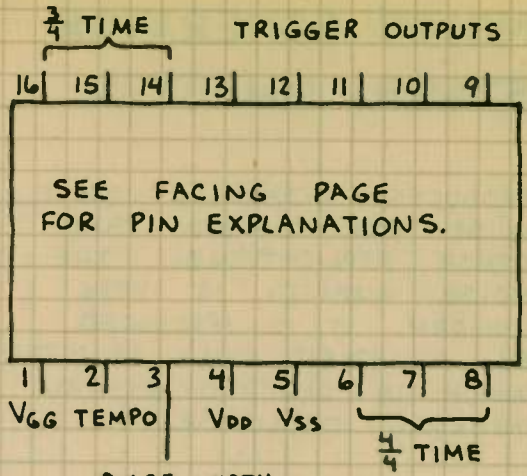 3/4 TIME TRIGGER OUTPUTS
16 15 14 13 12 11 10 9
SEE FACING PAGE
FOR PIN EXPLANATIONS.
1 2 3 4 5 6 7 8
VGG TEMPO VDD VSS
4/4 TIME